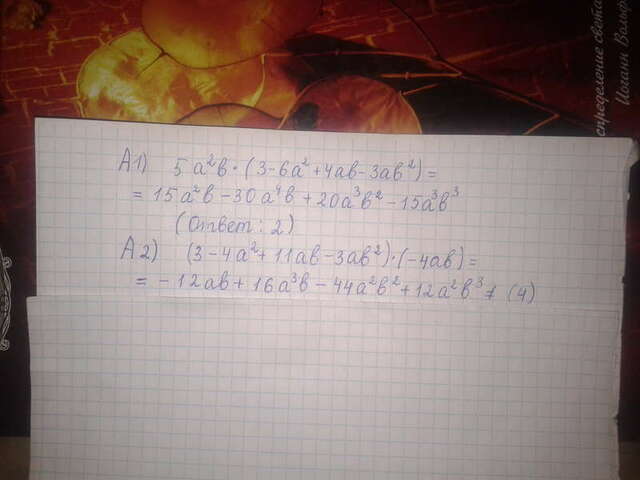 А1) 5a²b·(3-6a²+4ab-3ab²)=
= 15a²b-30a⁴b+20a³b²-15a³b³
(Ответ: 2)
А2) (3-4a²+11ab-3ab²)·(-4ab)=
= -12ab+16a³b-44a²b²+12a²b³ (4)
определение света
Иоганн